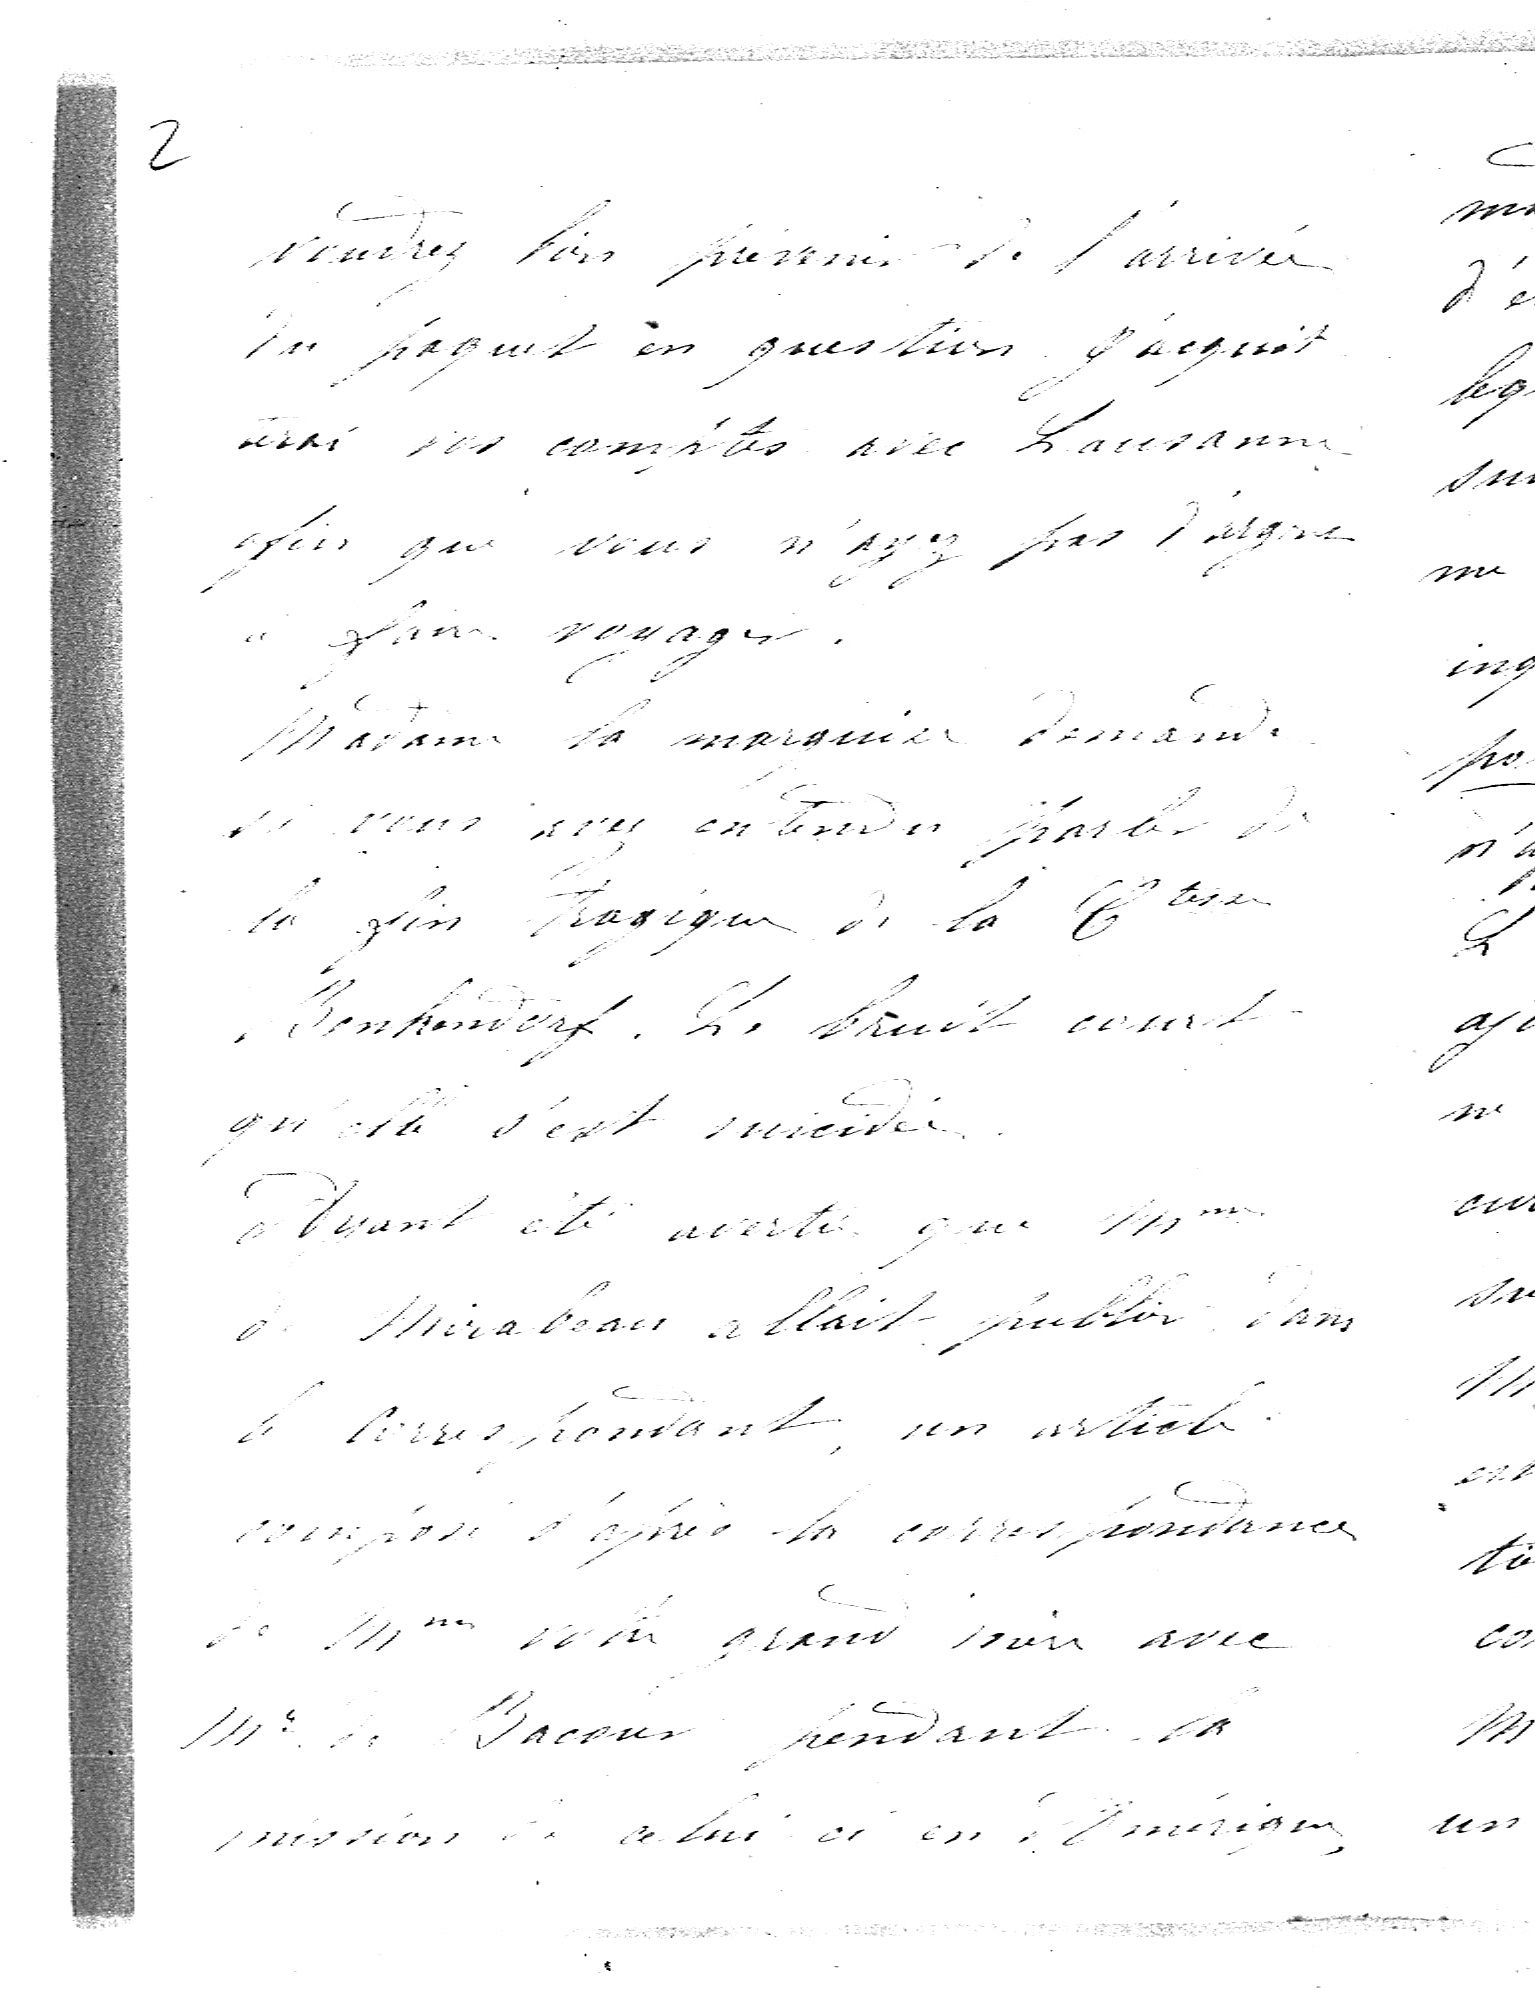 2
voudrez bien prévenir de l'arrivée
du paquet en question. J'acquit
terai vos comptes avec Lausanne
afin que vous n'ayez pas d'argent
à faire voyager.
Madame la marquise demande
si vous avez entendu parler de
la fin tragique de la Ctesse
Benkendorf. Le bruit court
qu'elle s'est suicidée.
Ayant été avertie que Mme
de Mirabeau allait publier dans
le Correspondant, un article
composé d'après la correspondance
de Mme votre grand mère avec
Mr de Bacour pendant la
mission de celui ci en Amérique,